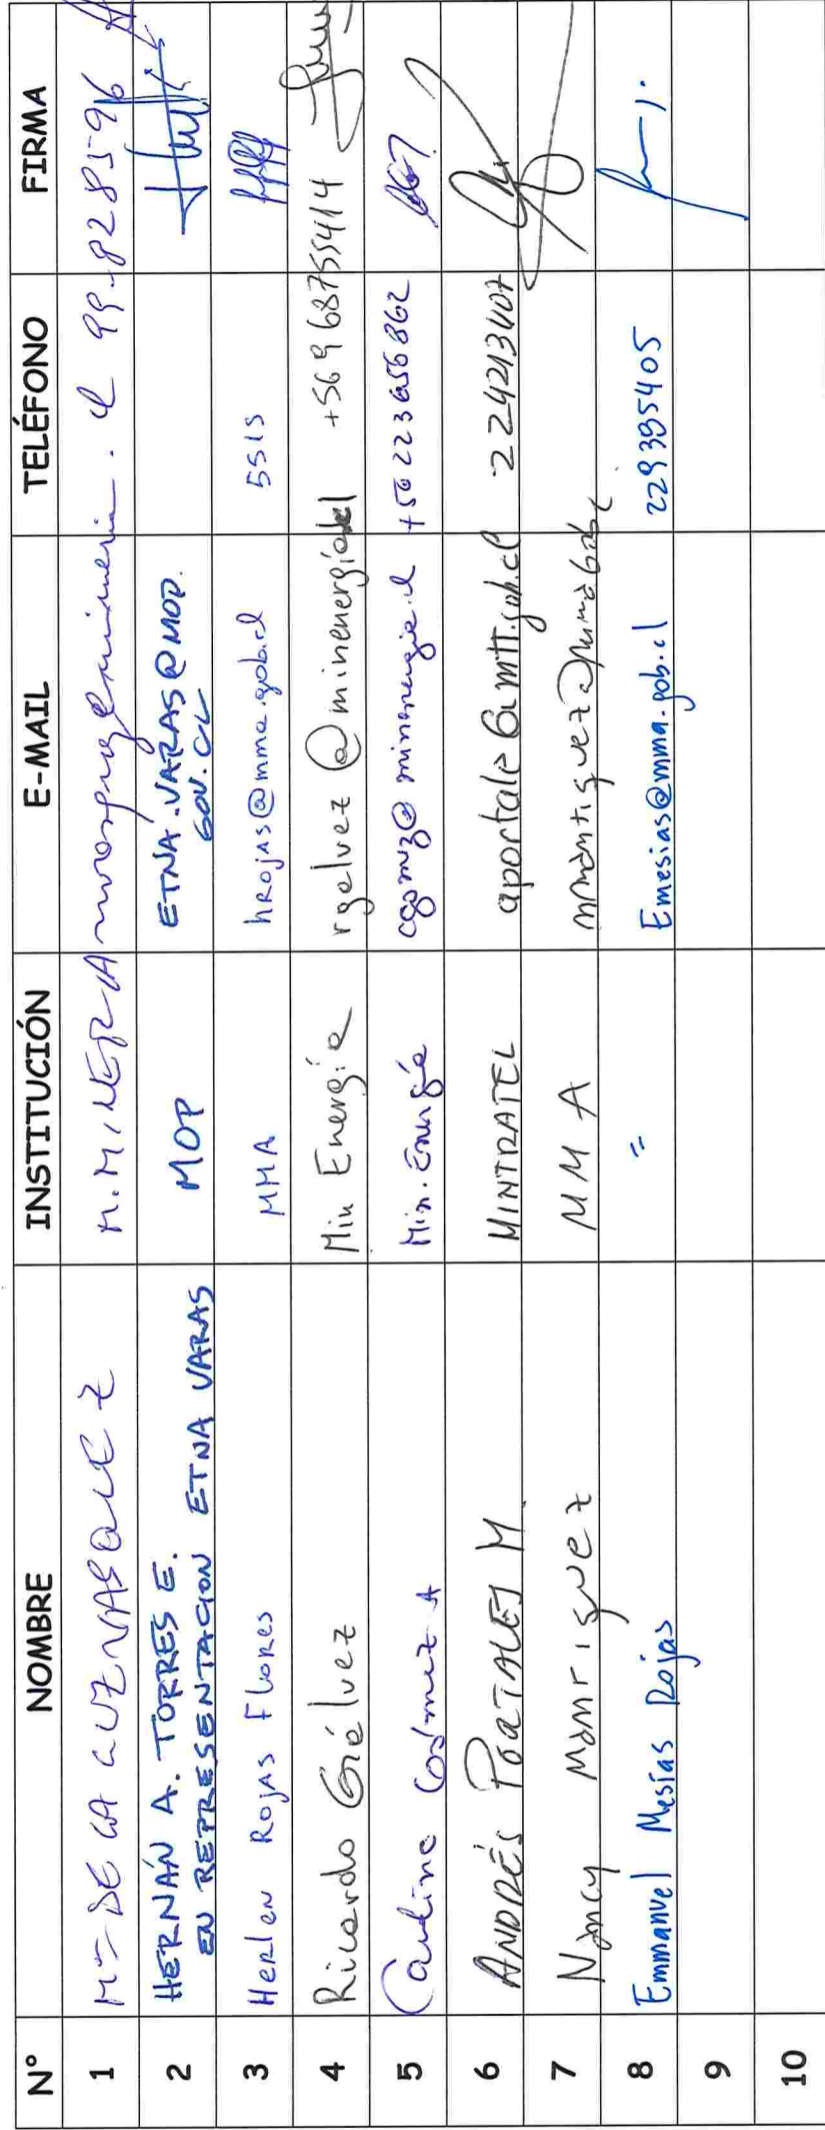 N° NOMBRE INSTITUCIÓN E-MAIL TELÉFONO FIRMA
1 Mª DE LA LUZ VASQUEZ M. MINERIA 99-8285996
2 HERNÁN A. TORRES E. MOP ETNA.VARAS@MOP.
EN REPRESENTACION ETNA VARAS GOV.CL
3 Herlen Rojas Flores MMA hrojas@mma.gob.cl 5515
4 Ricardo Gálvez Min Energía rgalvez@minenergia.cl +569 68755414
5 Carolina Gómez A Min. Energía cgomez@minenergia.cl +56223656862
6 ANDRÉS PORTALES M. MINTRATEL aportales@mtt.gob.cl 224213407
7 Nancy Manriquez MMA
8 Emmanuel Mesías Rojas " Emesias@mma.gob.cl 229395405
9
10